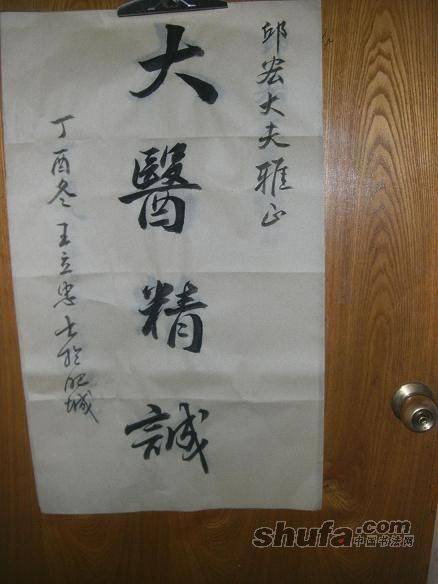 邱宏大夫雅正
大醫精誠
丁酉冬王立忠书於肥城
shufa.com
中国书法网